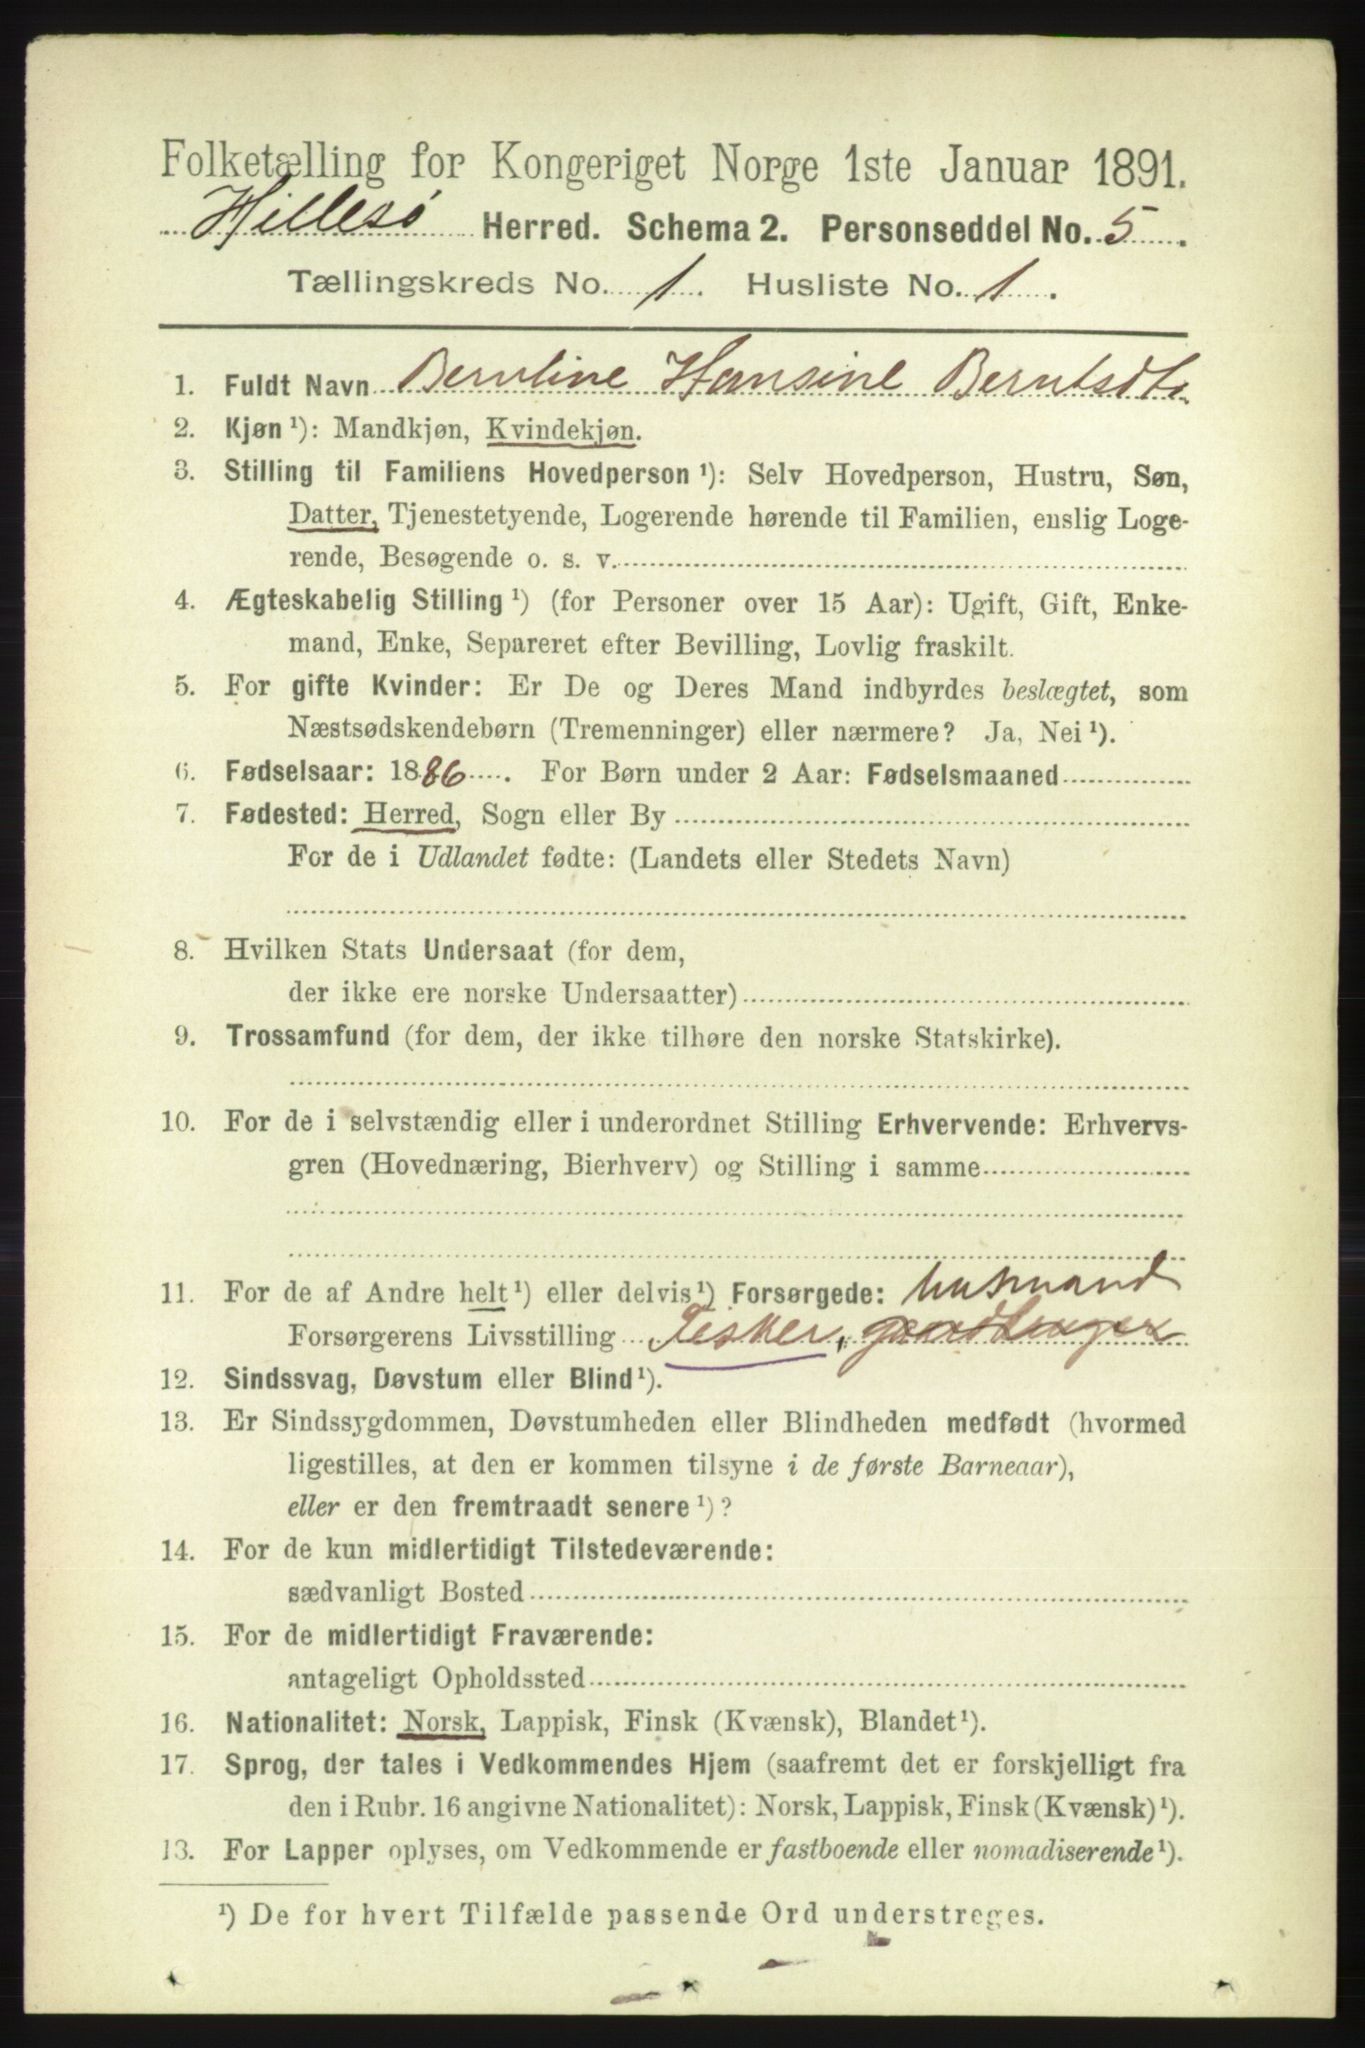 Folketælling for Kongeriget Norge 1ste Januar 1891.
Hillesø Herred. Schema 2. Personseddel No. 5.
Tællingskreds No. 1. Husliste No. 1.
1. Fuldt Navn Berntine Hansine Berntsdtr
2. Kjøn ¹): Mandkjøn, Kvindekjøn.
3. Stilling til Familiens Hovedperson ¹): Selv Hovedperson, Hustru, Søn,
Datter, Tjenestetyende, Logerende hørende til Familien, enslig Loge-
rende, Besøgende o. s. v.
4. Ægteskabelig Stilling ¹) (for Personer over 15 Aar): Ugift, Gift, Enke-
mand, Enke, Separeret efter Bevilling, Lovlig fraskilt.
5. For gifte Kvinder: Er De og Deres Mand indbyrdes beslægtet, som
Næstsødskendebørn (Tremenninger) eller nærmere? Ja, Nei ¹).
6. Fødselsaar: 1886. For Børn under 2 Aar: Fødselsmaaned
7. Fødested: Herred, Sogn eller By
For de i Udlandet fødte: (Landets eller Stedets Navn)
8. Hvilken Stats Undersaat (for dem,
der ikke ere norske Undersaatter)
9. Trossamfund (for dem, der ikke tilhøre den norske Statskirke).
10. For de i selvstændig eller i underordnet Stilling Erhvervende: Erhvervs-
gren (Hovednæring, Bierhverv) og Stilling i samme
11. For de af Andre helt ¹) eller delvis ¹) Forsørgede: husmand
Forsørgerens Livsstilling Fisker, gaardbruger
12. Sindssvag, Døvstum eller Blind ¹).
13. Er Sindssygdommen, Døvstumheden eller Blindheden medfødt (hvormed
ligestilles, at den er kommen tilsyne i de første Barneaar),
eller er den fremtraadt senere ¹)?
14. For de kun midlertidigt Tilstedeværende:
sædvanligt Bosted
15. For de midlertidigt Fraværende:
antageligt Opholdssted
16. Nationalitet: Norsk, Lappisk, Finsk (Kvænsk), Blandet ¹).
17. Sprog, der tales i Vedkommendes Hjem (saafremt det er forskjelligt fra
den i Rubr. 16 angivne Nationalitet): Norsk, Lappisk, Finsk (Kvænsk) ¹).
13. For Lapper oplyses, om Vedkommende er fastboende eller nomadiserende ¹).
¹) De for hvert Tilfælde passende Ord understreges.